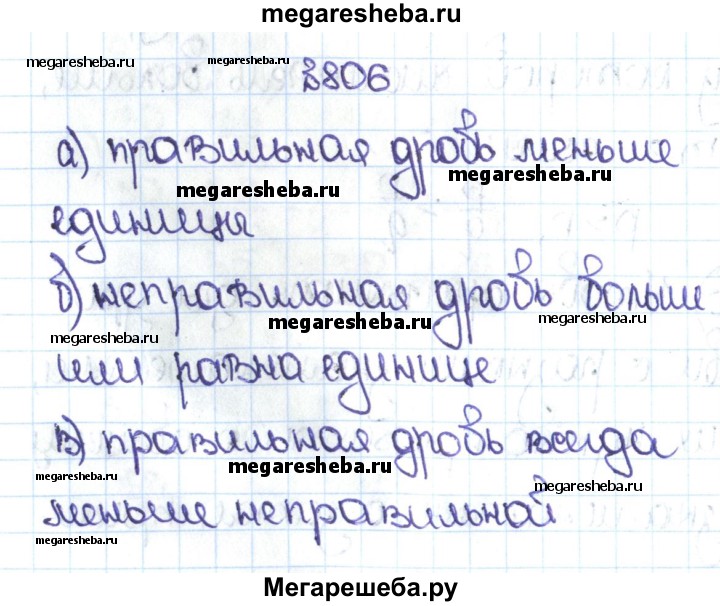 megaresheba.ru
megaresheba.ru megaresheba.ru
№806
а) правильная дробь меньше
megaresheba.ru megaresheba.ru
единицы
б) неправильная дробь больше
megaresheba.ru megaresheba.ru
megaresheba.ru
или равна единице
в) правильная дробь всегда
megaresheba.ru
megaresheba.ru megaresheba.ru
меньше неправильной
megaresheba.ru
Мегарешеба.ру